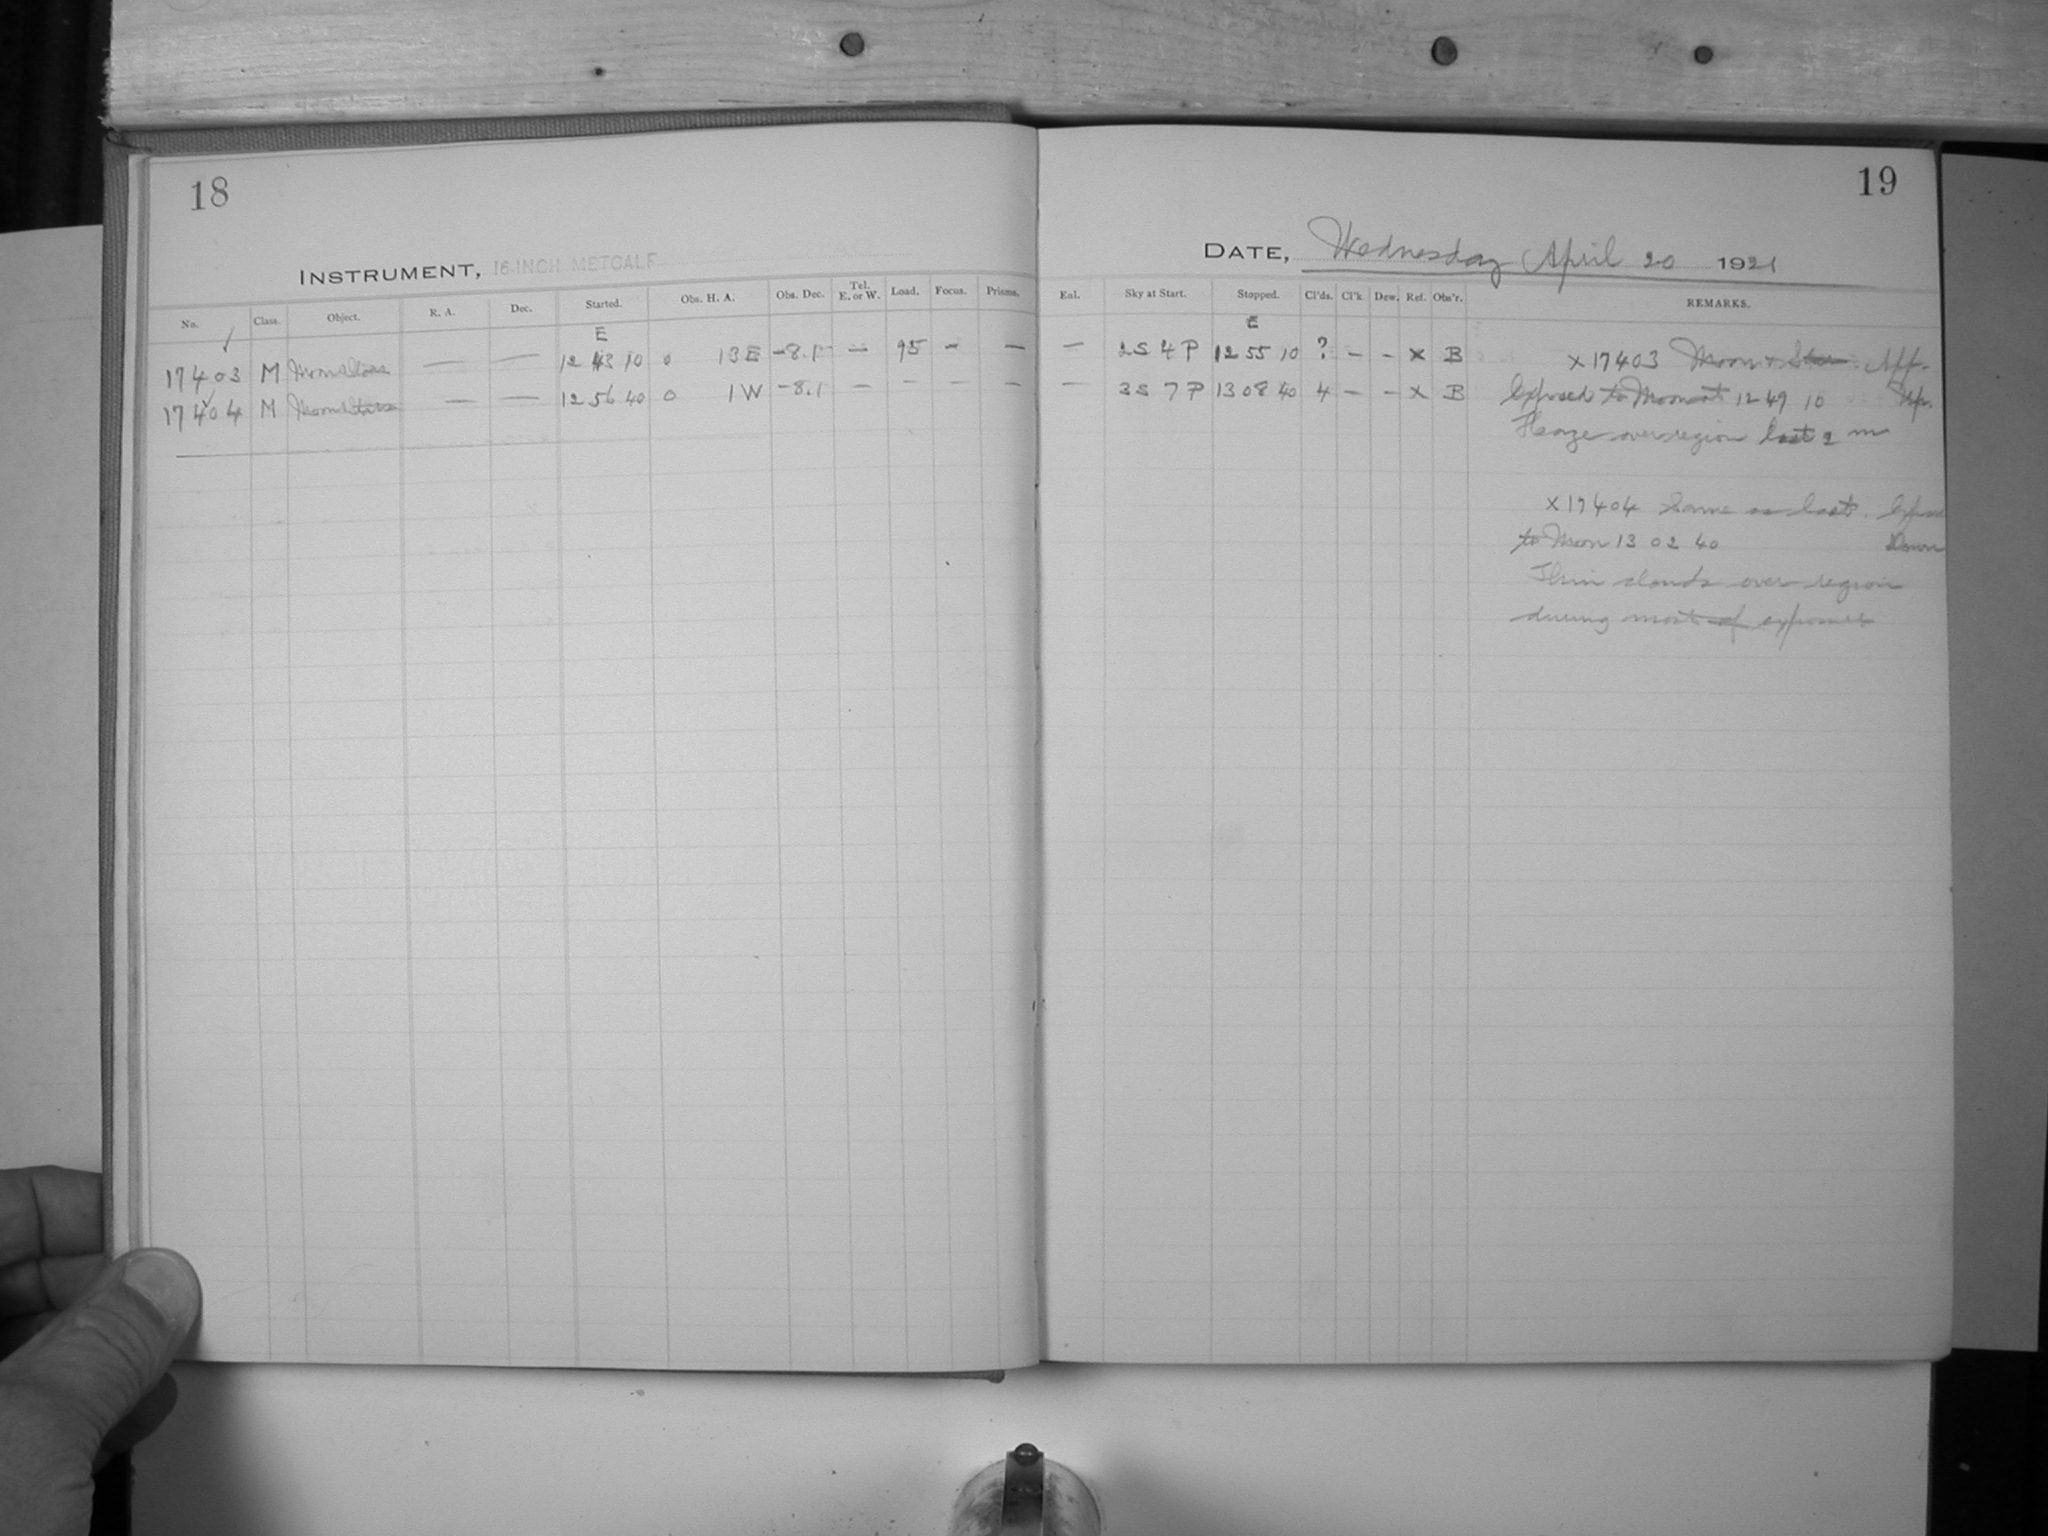 18
INSTRUMENT, 16-INCH METCALF
No. Class. Object. R. A. Dec. Started. Obs. H. A. Obs. Dec. Tel. E. or W. Load. Focus. Prisms.
E
17403 M Moon & Stars — — 12 43 10 0 13 E -8.1 — 95 - —
17404 M Moon & Stars — — 12 56 40 0 1 W -8.1 — - — —
19
DATE, Wednesday April 20 1921
Enl. Sky at Start. Stopped. Cl'ds. Cl'k. Dew. Ref. Obs'r. REMARKS.
E
— 2S 4 P 12 55 10 ? - - x B X 17403 Moon & Star.
— 3S 7 P 13 08 40 4 - - x B Exposed to Moon at 12 49 10 Up.
Haze over region last 2 m
X 17404 Same as last.
to Moon 13 02 40 Down
Thin clouds over region
during most of exposure